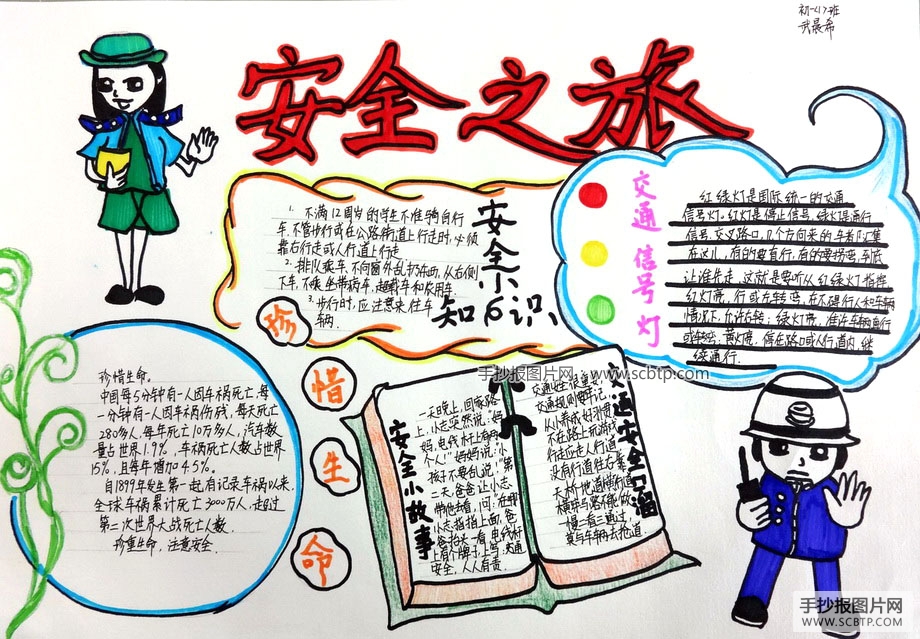 初一417班
武晨希
安全之旅
安全小知识
1. 不满12周岁的学生不准骑自行
车.不管步行或在公路街道上行走时,必须
靠右行走或人行道上行走
2. 排队乘车、不向窗外乱扔东西,从右侧
下车,不乘坐带病车,超载车和农用车.
3. 步行时,应注意来往车
辆.
交通信号灯
红绿灯是国际统一的交通
信号灯。红灯是停止信号,绿灯是通行
信号.交叉路口,几个方向来的车都汇集
在这儿,有的要直行,有的要拐弯,到底
让谁先走,这就是要听从红绿灯指挥
红灯亮,
行或左转弯,在不碍行人和车辆
情况下,允许右转;绿灯亮,准许车辆直行
或转弯,黄灯亮,停在路口或人行道内,继
续通行.
珍惜生命
珍惜生命。
中国每5分钟有一人因车祸死亡,每
一分钟有一人因车祸伤残,每天死亡
280多人,每年死亡10万多人,汽车数
量占世界1.9%,车祸死亡人数占世界
15%,且每年增加4.5%。
自1899年发生第一起有记录车祸以来,
全球车祸累计死亡3000万人,超过
第二次世界大战死亡人数.
珍重生命,注意安全.
安全小故事
一天晚上,回家路
上,小志突然说:妈
妈,电线杆上有两
个人!妈妈说:小
孩子不要乱说!第
二天,爸爸让小志
带他去看,问:在哪
小志指指上面,爸
爸抬头一看,电线杆
上有个牌子上写:交通
安全,人人有责.
交通安全口诀
交通安全很重要,
交通规则要牢记,
从小养成好习惯,
不在路上玩游戏
行走应走人行道
没有行道往右靠
天桥地道横行道
横穿马路不能做
一慢二看三通过
莫与车辆去抢道.
手抄报图片网 www.scbtp.com
手抄报图片网
WWW.SCBTP.COM